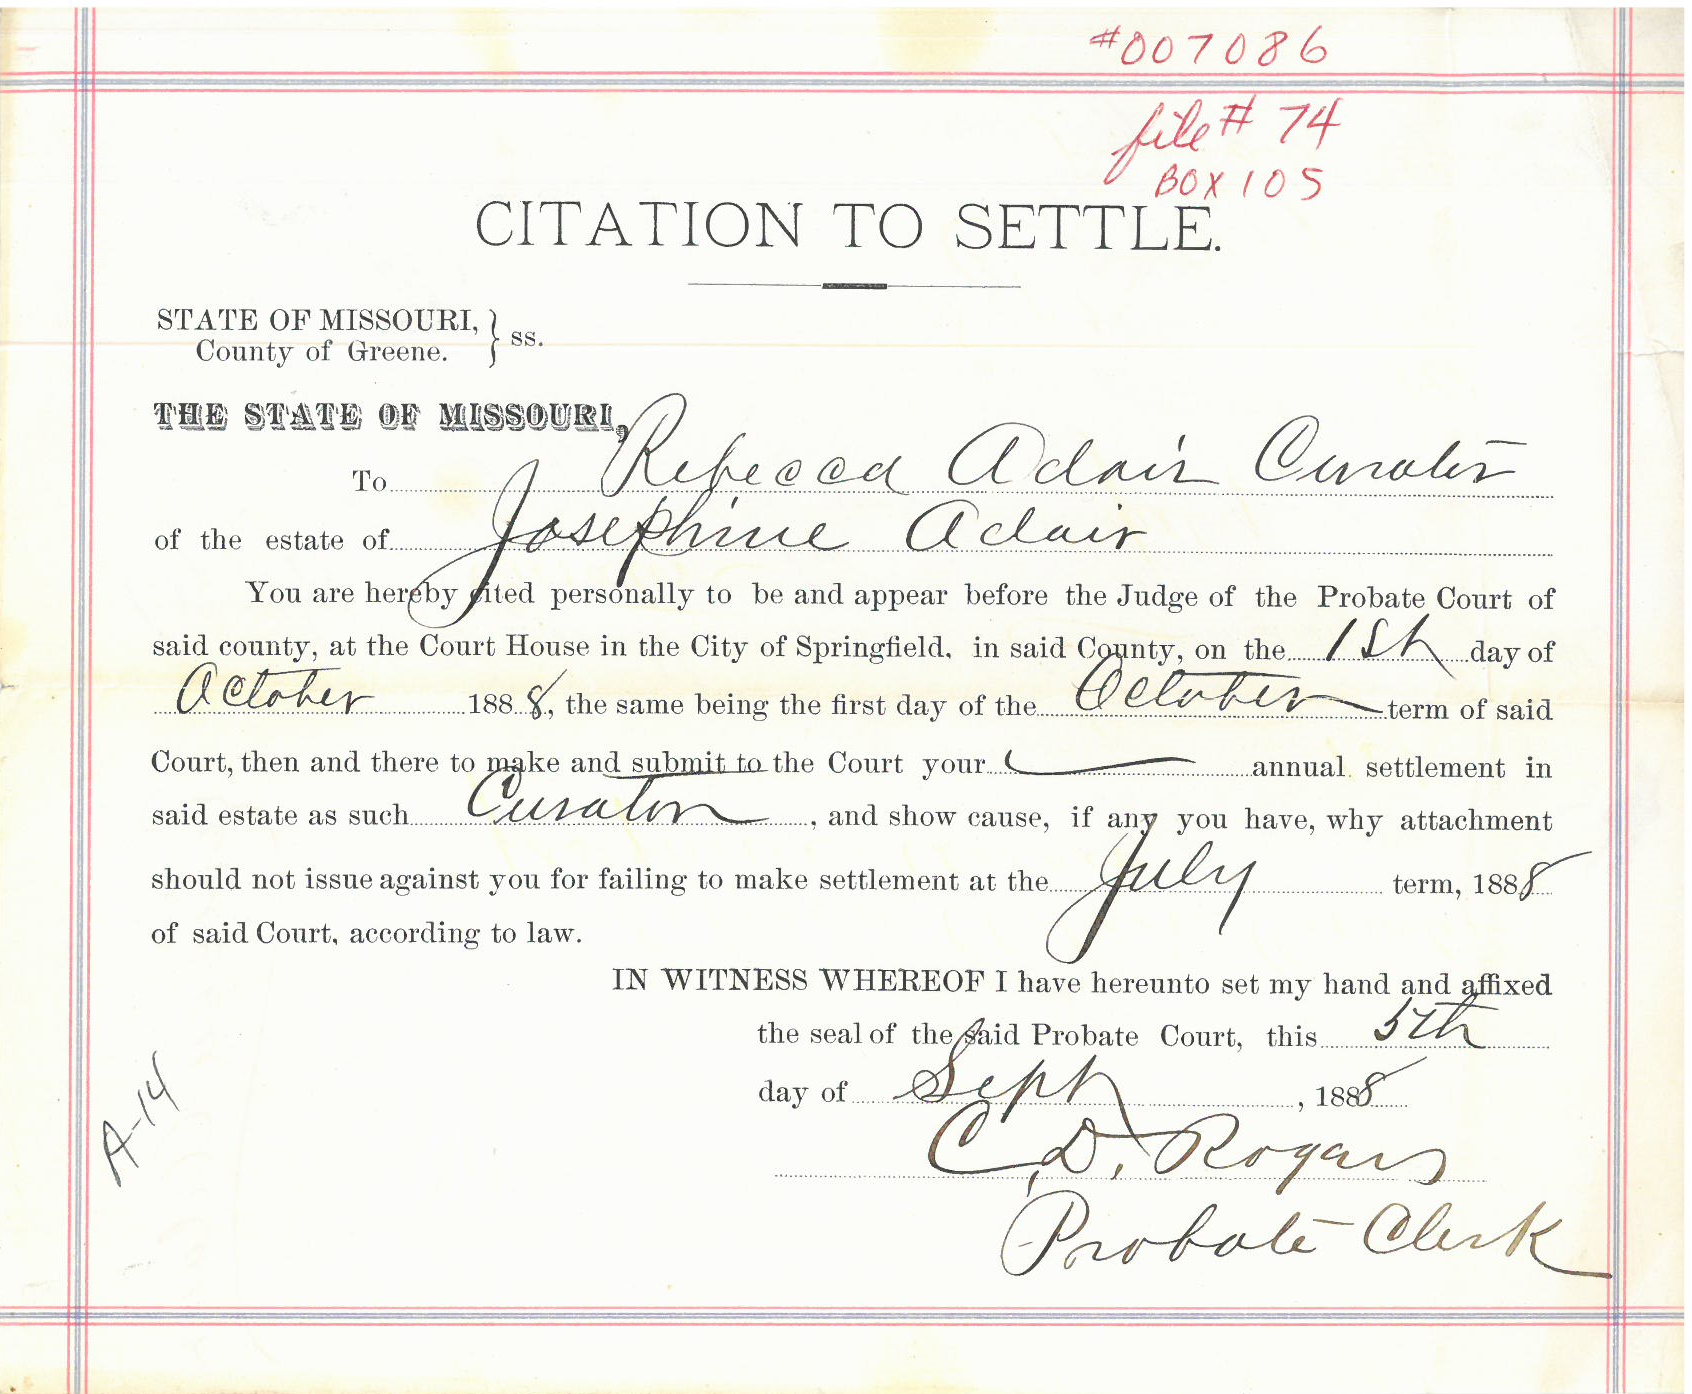 #007086
file # 74
BOX 105
CITATION TO SETTLE.
STATE OF MISSOURI, } ss.
County of Greene.
THE STATE OF MISSOURI,
To Rebecca Adair Curator
of the estate of Josephine Adair
You are hereby cited personally to be and appear before the Judge of the Probate Court of
said county, at the Court House in the City of Springfield, in said County, on the 1st day of
October 1888, the same being the first day of the October term of said
Court, then and there to make and submit to the Court your annual settlement in
said estate as such Curator, and show cause, if any you have, why attachment
should not issue against you for failing to make settlement at the July term, 1888
of said Court, according to law.
IN WITNESS WHEREOF I have hereunto set my hand and affixed
the seal of the said Probate Court, this 5th
day of Sept, 1888
C. D. Rogers
Probate Clerk
A-14